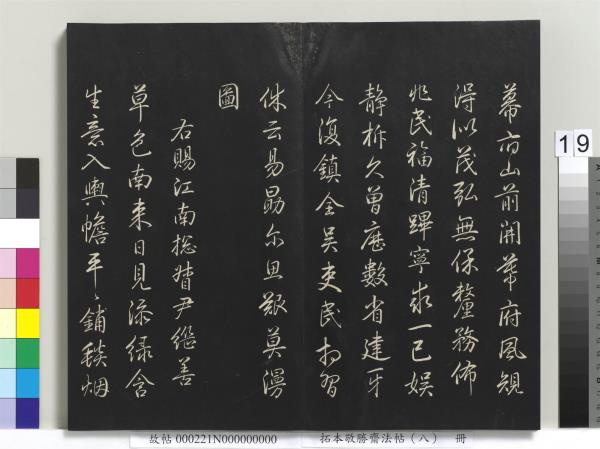 幕府山前開幕府風規
得似茂弘無保釐務佈
兆民福清蹕寧求一己娛
静柝久曾歷數省建牙
今復鎮全吳吏民相習
休云易勗尔思艱莫漫
圖
右賜江南総督尹継善
草色南来日見添緑含
生意入輿幨平〻鋪毯烟
19
故帖 000221N000000000
拓本敬勝齋法帖（八） 冊